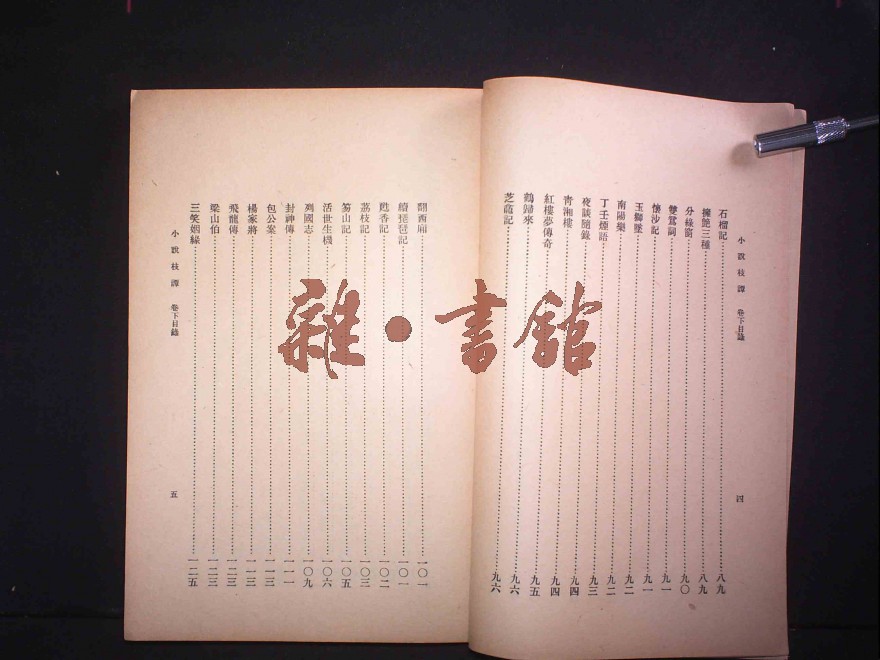 小說枝譚 卷下目錄
石榴記……八九
擁艷三種……八九
分綠窗……九〇
雙鴛祠……九一
懷沙記……九一
玉獅墜……九二
南陽樂……九二
丁壬煙語……九三
夜談隨錄……九四
青湘樓……九四
紅樓夢傳奇……九四
鶴歸來……九五
芝龕記……九六
四
翻西廂……一〇一
續琵琶記……一〇一
甦香記……一〇二
荔枝記……一〇三
笏山記……一〇五
活世生機……一〇六
列國志……一〇九
封神傳……一一一
包公案……一一三
楊家將……一一三
飛龍傳……一二三
梁山伯……一二三
三笑姻緣……一二五
小說枝譚 卷下目錄
五
雜·書館